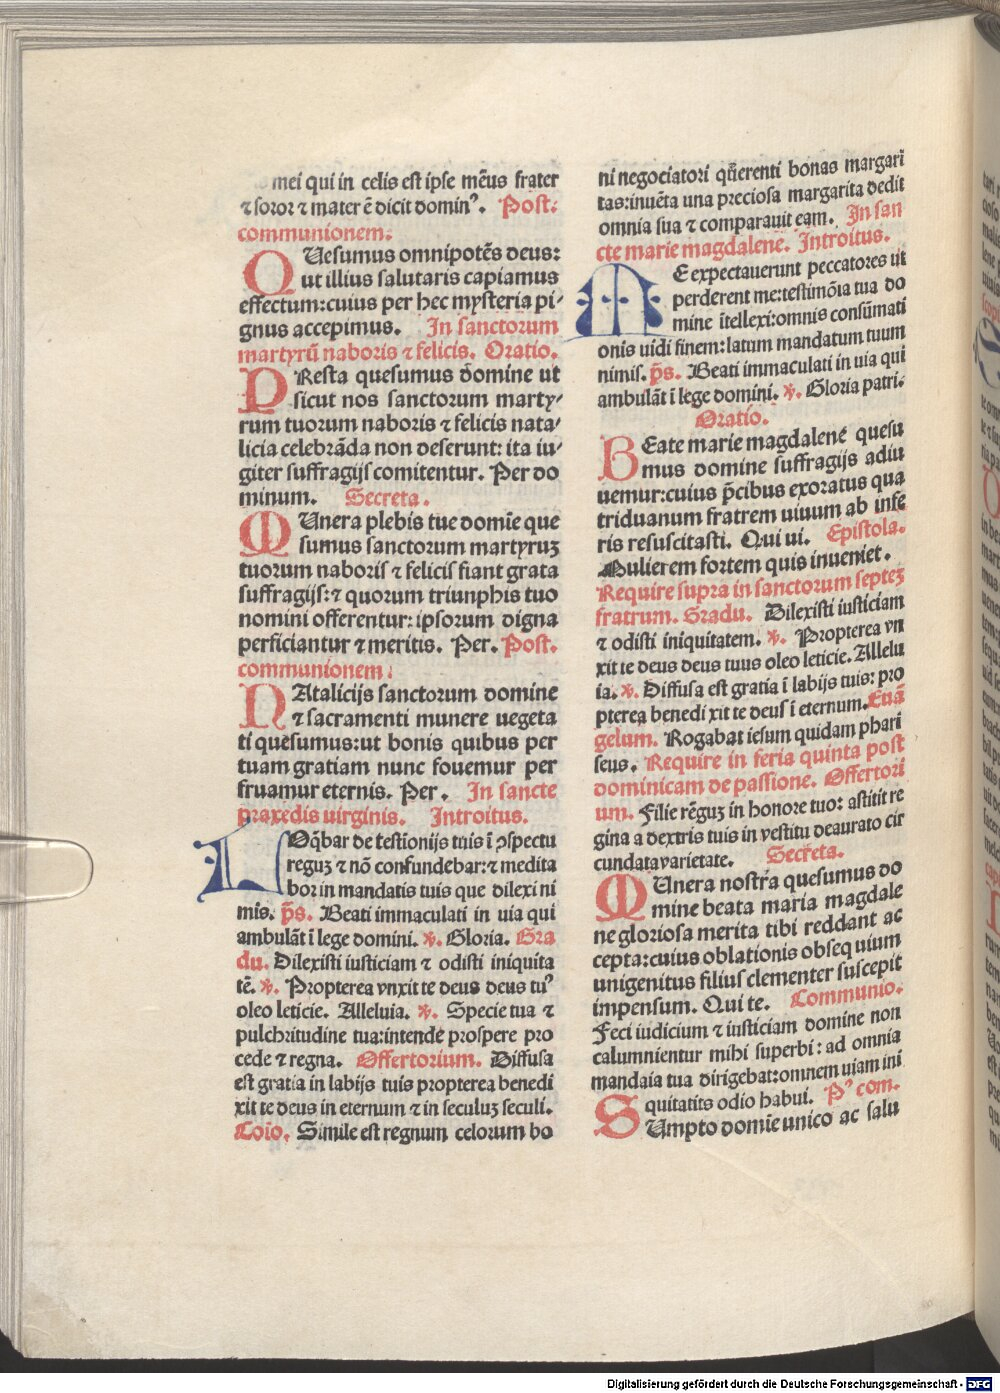 mei qui in celis est ipse mēus frater
⁊ soror ⁊ mater ē dicit dominꝰ. Post:
communionem.
QUesumus omnipotēs deus:
ut illius salutaris capiamus
effectum:cuius per hec mysteria pi-
gnus accepimus. In sanctorum
martyrū naboris ⁊ felicis. Oratio.
PResta quesumus domine ut
sicut nos sanctorum marty-
rum tuorum naboris ⁊ felicis nata-
licia celebrāda non deserunt: ita iu-
giter suffragijs comitentur. Per do
minum. Secreta.
MUnera plebis tue domīe que
sumus sanctorum martyruꝫ
tuorum naboris ⁊ felicis fiant grata
suffragijs:⁊ quorum triunphis tuo
nomini offerentur: ipsorum digna
perficiantur ⁊ meritis. Per. Post.
communionem.
NAtalicijs sanctorum domine
⁊ sacramenti munere uegeta
ti quesumus:ut bonis quibus per
tuam gratiam nunc fouemur per
fruamur eternis. Per. In sancte
praxedis uirginis. Introitus.
LOq̄bar de testionijs tuis ī ↄspectu
reguꝫ ⁊ nō confundebar:⁊ medita
bor in mandatis tuis que dilexi ni
mis. p̄s. Beati immaculati in uia qui
ambulāt ī lege domini. ℣. Gloria. Gra
du. Dilexisti iusticiam ⁊ odisti iniquita
tē. ℣. Propterea vnxit te deus deus tuꝰ
oleo leticie. Alleluia. ℣. Specie tua ⁊
pulchritudine tua:intende prospere pro
cede ⁊ regna. Offertorium. Diffusa
est gratia in labijs tuis propterea benedi
xit te deus in eternum ⁊ in seculuꝫ seculi.
Coīo. Simile est regnum celorum ho
ni negociatori q̄rerenti bonas margari
tas:inuēta una preciosa margarita dedit
omnia sua ⁊ comparauit eam. In san
cte marie magdalene. Introitus.
ME expectauerunt peccatores ut
perderent me:testimōia tua do
mine ītellexi:omnis consūmati
onis uidi finem:latum mandatum tuum
nimis. p̄s. Beati immaculati in uia qui
ambulāt ī lege domini. ℣. Gloria patri.
Oratio.
BEate marie magdalene quesu
mus domine suffragijs adiu
uemur:cuius p̄cibus exoratus qua
triduanum fratrem uiuum ab infe
ris resuscitasti. Qui ui. Epistola.
Mulierem fortem quis inueniet.
Require supra in sanctorum septeꝫ
fratrum. Gradu. Dilexisti iusticiam
⁊ odisti iniquitatem. ℣. Propterea vn
xit te deus deus tuus oleo leticie. Allelu
ia. ℣. Diffusa est gratia ī labijs tuis: pro
pterea benedi xit te deus ī eternum. Euā
gelum. Rogabat iesum quidam phari
seus. Require in feria quinta post
dominicam de passione. Offertori
um. Filie rēguꝫ in honore tuo: astitit re
gina a dextris tuis in vestitu deaurato cir
cundata varietate. Secreta.
MUnera nostra quesumus do
mine beata maria magdale
ne gloriosa merita tibi reddant ac
cepta:cuius oblationis obsequium
unigenitus filius clementer suscepit
impensum. Qui te. Communio.
Feci iudicium ⁊ iusticiam domine non
calumnientur mihi superbi: ad omnia
mandaia tua dirigebar:omnem uiam ini
quitatis odio habui. Pꝰ com.
SUmpto domīe unico ac salu
Digitalisierung gefördert durch die Deutsche Forschungsgemeinschaft - DFG